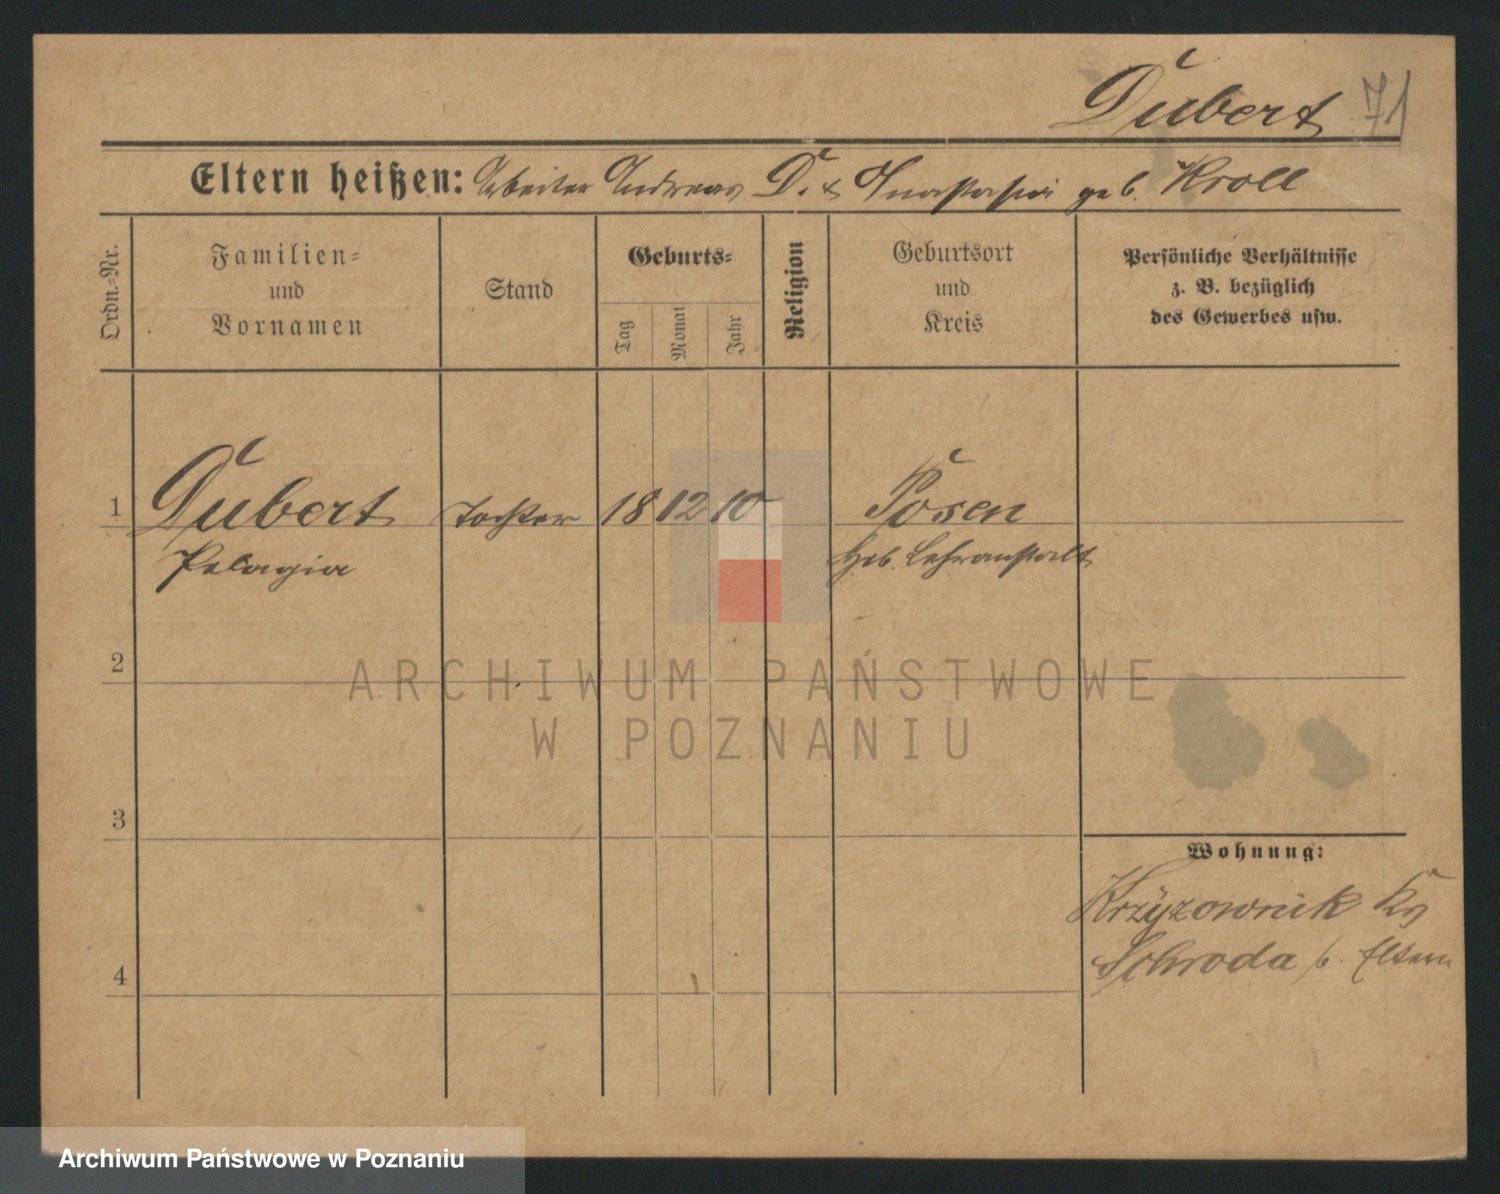 Dubert 71
Eltern heißen: Arbeiter Andreas D. & Anastasia geb. Kroll
Ordn.-Nr.
Familien-
und
Vornamen
Stand
Geburts-
Tag
Monat
Jahr
Religion
Geburtsort
und
Kreis
Persönliche Verhältnisse
z. B. bezüglich
des Gewerbes usw.
1 Dubert Tochter 18 12 10 Posen
Pelagia Heb. Lehranstalt
2
ARCHIWUM PAŃSTWOWE
W POZNANIU
3
Wohnung:
Krzyzownik Kr
Schroda b. Eltern
4
Archiwum Państwowe w Poznaniu